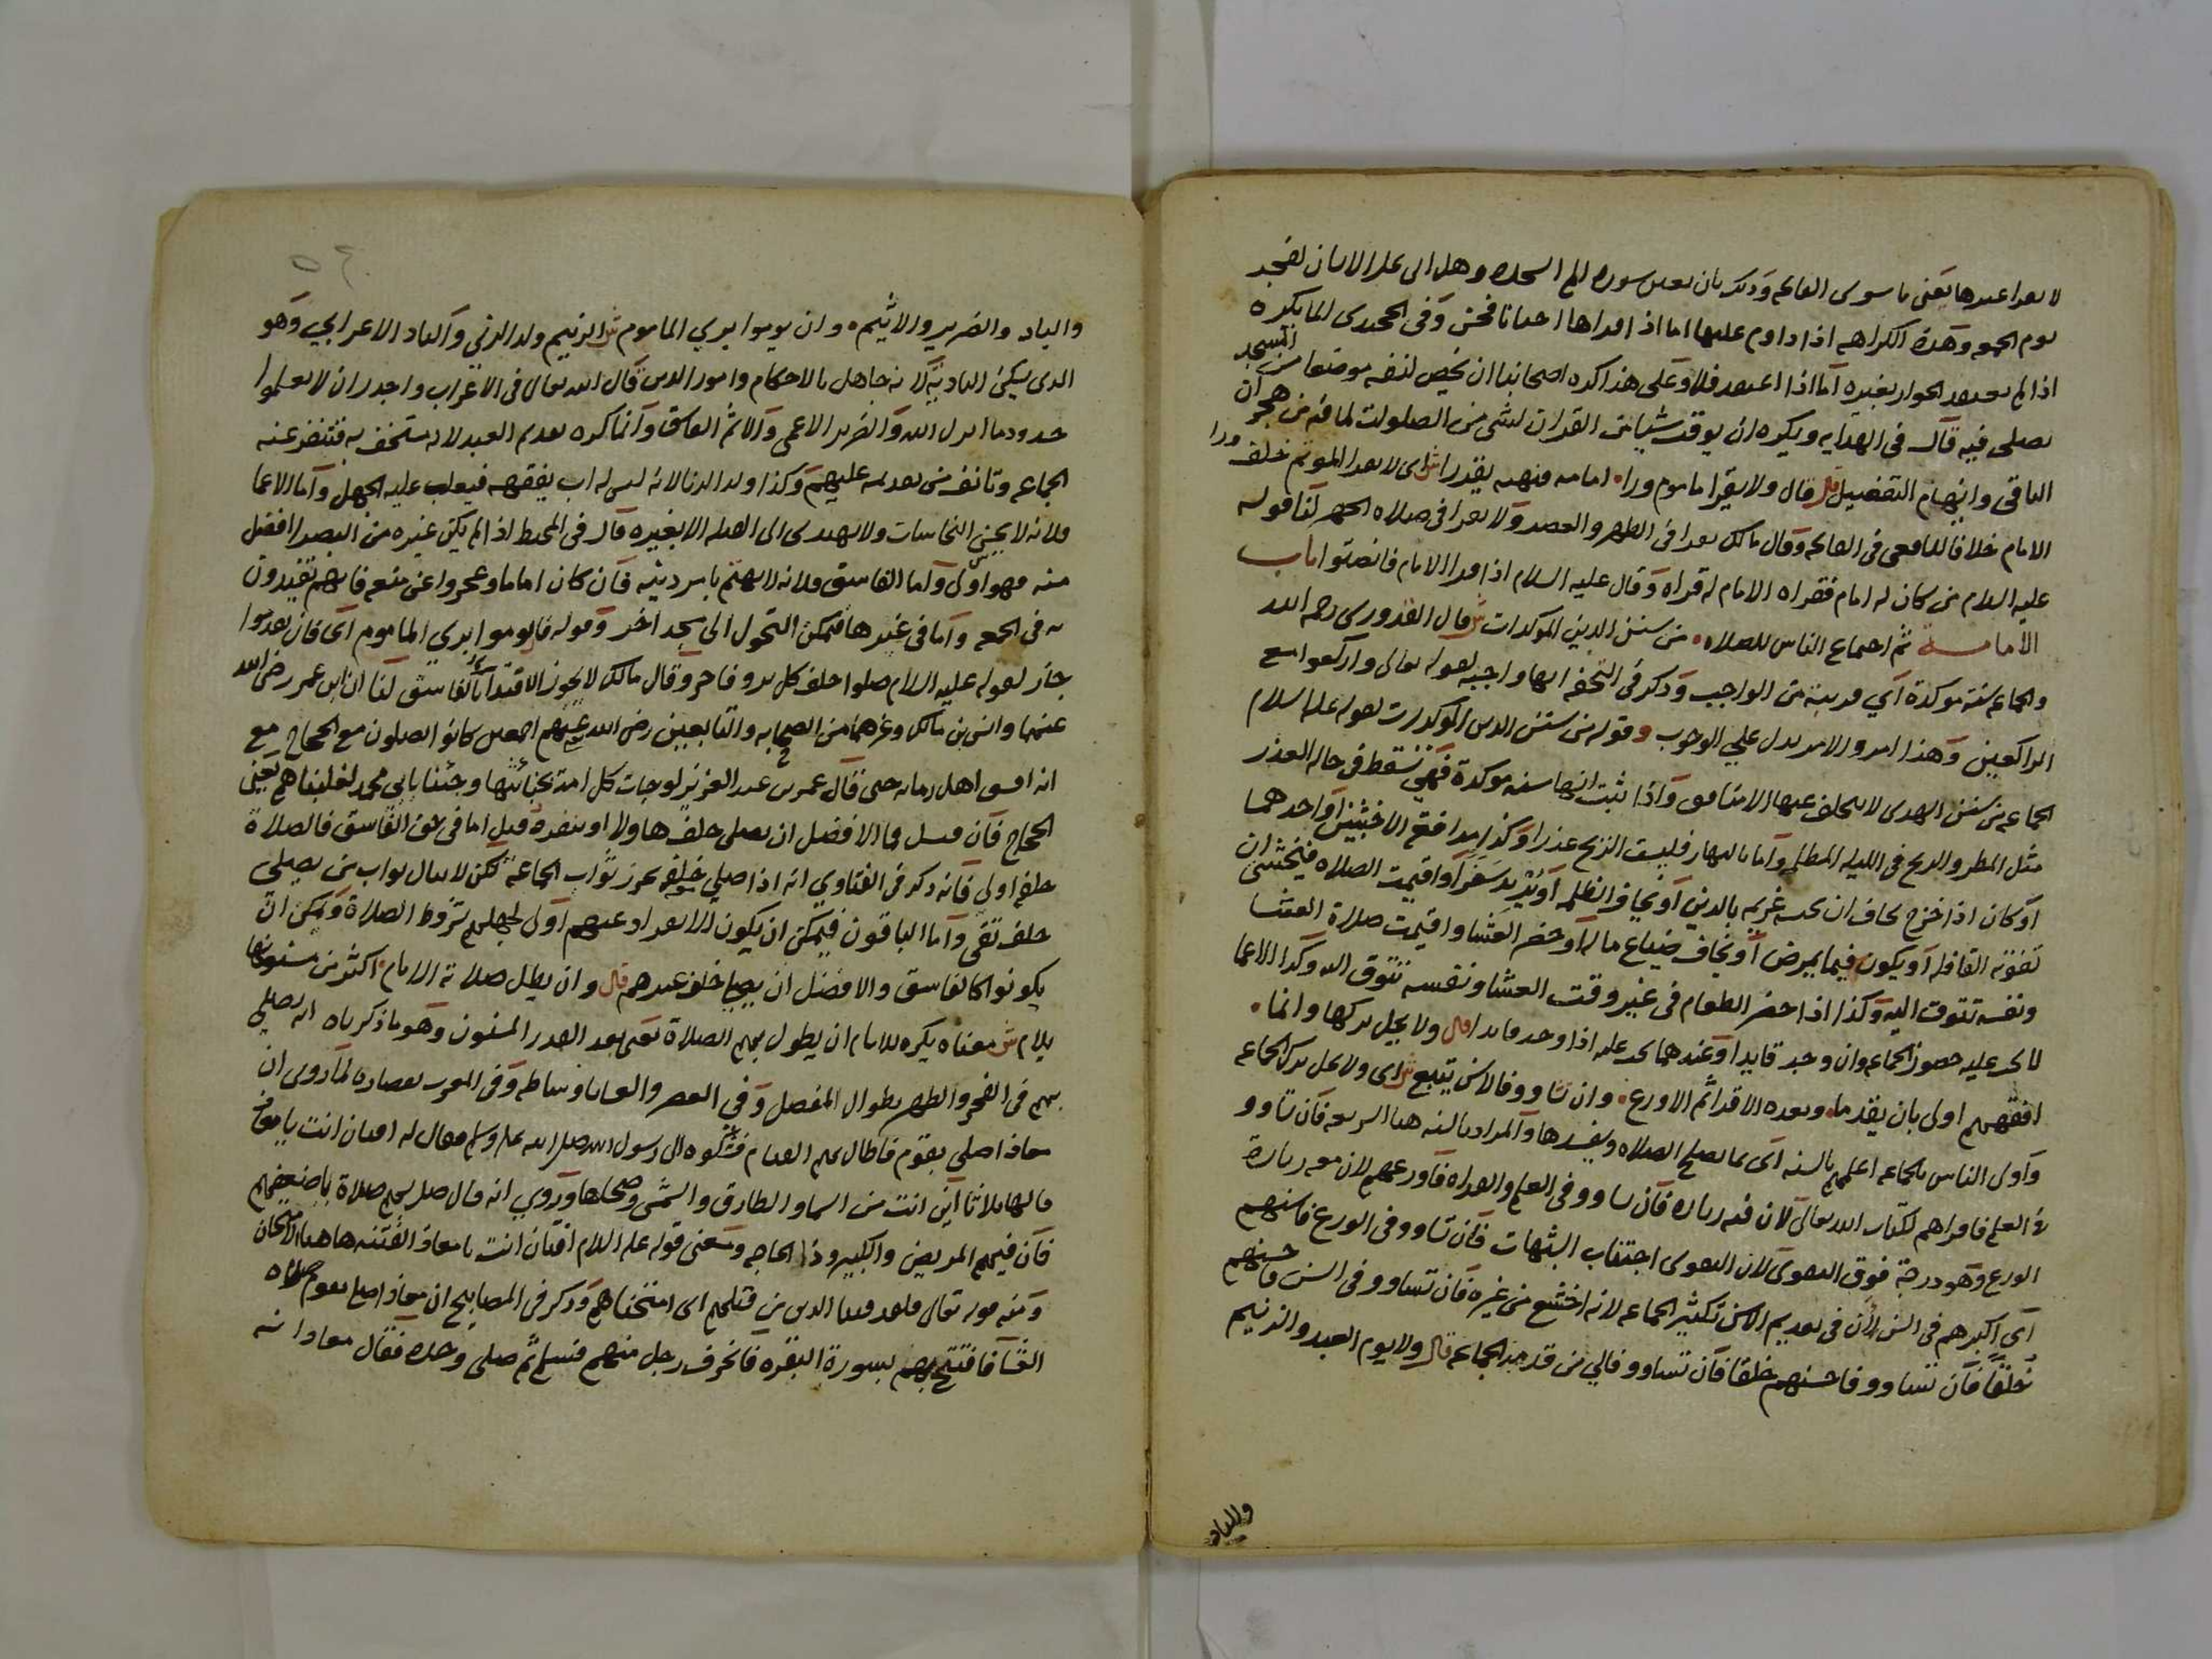 لا يقرا غيرها يعني ما سوى الفاتحه وذلك بان يعين سورة الم السجده وهل اتى على الانسان لفجر
يوم الجمعه وهذه الكراهه اذا داوم عليها اما اذا قراها احيانا فحسن وفي الخجندي انما يكره
اذا لم يعتقد الجواز بغيره اما اذا اعتقد فلا وعلى هذا كره اصحابنا ان يخص لنفسه موضعا من المسجد
يصلى فيه قال في الهدايه ويكره ان يوقت شيا من القران لشى من الصلوات لما فيه من هجران
الباقي وايهام التفضيل قال ولا يقرا ماموم ورا امامه ش اى لا يقرا الموتم خلف
الامام خلافا للشافعى في الفاتحه وقال مالك يقرا في الظهر والعصر ولا يقرا في صلاه الجهر لنا قوله
عليه السلام من كان له امام فقراه الامام له قراه وقال عليه السلام اذا قرا الامام فانصتوا باب
الامامه ثم اجماع الناس للصلاه من سنن الدين الموكدات ش قال القدوري رحمه الله
والجماعه سنه موكدة اي قريبة من الواجب وذكر في التحفه انها واجبه لقوله تعالى واركعوا مع
الراكعين وهذا امر والامر يدل علي الوجوب وقوله من سنن الدين الموكدات لقوله عليه السلام
الجماعه من سنن الهدى لا يتخلف عنها الا منافق واذا ثبت انها سنه موكدة فهي تسقط في حال العذر
مثل المطر والريح في الليله المظلمه واما بالنهار فليست الريح عذرا وكذا مدافعة الاخبثين او احدهما
او كان اذا خرج يخاف ان يحبسه غريمه بالدين او يخاف الظلمه او يريد سفرا واقيمت الصلاه فيخشى ان
تفوته القافله او يكون قيما بمريض او يخاف ضياع ماله او حضر العشا واقيمت صلاة العشا
ونفسه تتوق اليه وكذا اذا حضر الطعام في غير وقت العشا ونفسه تتوق اليه وكذا الاعما
لا يجب عليه حضور الجماعه وان وجد قايدا وعندهما يجب عليه اذا وجد قايدا قال ولا يحل تركها وانما
افقههم اولى بان يقدما وبعده الاقرا ثم الاورع وان تساووا فالاسن يتبع ش اى ولا يحل ترك الجماعه
واولى الناس بالجماعه اعلمهم بالسنه اى بما يصلح الصلاه ويفسدها والمراد بالسنه هنا الشريعه فان تساووا
في العلم فاقراهم لكتاب الله تعالى لان فيه زياده فان تساووا في العلم والقراه فاورعهم لان معه زيادة
الورع وهو درجة فوق التقوى لان التقوى اجتناب الشبهات فان تساووا في الورع فاسنهم
اى اكبرهم في السن لان في تقديم الاسن تكثير الجماعه لانه اخشع من غيره فان تساووا في السن فاحسنهم
خلقا فان تساووا فاحسنهم خلقا فان تساووا قال ولا يوم العبد والزنيم
والباد
والباد والضرير والاثيم وان يوموا يري الماموم ش الزنيم ولد الزنى والباد الاعرابي وهو
الذى يسكن الباديه لانه جاهل بالاحكام وامور الدين قال الله تعالى في الاعراب واجدر ان لا يعلموا
حدود ما انزل الله والضرير الاعمى والاثم الفاسق وانما كره تقديم العبد لانه مستخف به فتنفر عنه
الجماعه وتانف من تقدمه عليهم وكذا ولد الزنا لانه ليس له اب يفقهه فيغلب عليه الجهل واما الاعما
فلانه لا يجتنب النجاسات ولا يهتدى الى القبله الا بغيره قال في المحيط اذا لم يكن غيره من البصرا افضل
منه فهو اولى واما الفاسق فلانه لا يهتم بامر دينه فان كان اماما وعجزوا عن منعه فانهم يقتدون
به في الجمعه واما في غيرها فيمكن التحول الى مسجد اخر وقوله فان يوموا يري الماموم اى فان تقدموا
جاز لقوله عليه السلام صلوا خلف كل بر وفاجر وقال مالك لا يجوز الاقتدا بالفاسق لنا ان ابن عمر رضى الله
عنهما وانس بن مالك وغيرهما من الصحابه والتابعين رضى الله عنهم اجمعين كانوا يصلون مع الحجاج مع
انه افسق اهل زمانه حتى قال عمر بن عبد العزيز لو جات كل امة بخبائثها وجئنا بابي محمد لغلبناهم يعنى
الحجاج فان قيل فما الافضل ان يصلى خلف هاولا او ينفرد قيل اما في حق الفاسق فالصلاة
خلفه اولى فانه ذكر في الفتاوي انه اذا صلي خلفه يحرز ثواب الجماعه لكن لا ينال ثواب من يصلي
خلف تقي واما الباقون فيمكن ان يكون الانفراد عنهم اولى لجهلهم بشروط الصلاة ويمكن ان
يكونوا كالفاسق والافضل ان يصلي خلف غيرهم قال وان يطل صلاته الامام اكثر من مسنونها
يلام ش معناه يكره للامام ان يطول بهم الصلاة يعنى بعد القدر المسنون وهو ما ذكرناه انه يصلي
بهم في الفجر والظهر بطوال المفصل وفي العصر والعشا باوساطه وفي المغرب بقصاره لما روى ان
معاذا صلى بقوم فاطال بهم القيام فشكوه الى رسول الله صلى الله عليه وسلم فقال له افتان انت يا معاذ
قالها ثلاثا اين انت من السما والطارق والشمس وضحاها وروي انه قال صل بهم صلاة اضعفهم
فان فيهم المريض والكبير وذا الحاجه ومعنى قوله عليه السلام افتان انت يا معاذ الفتنه هاهنا الامتحان
ومنه قوله تعالى ولقد فتنا الذين من قبلهم اى امتحناهم وذكر في المصابيح ان معاذا صلى بقوم صلاه
العشا فافتتح بهم بسورة البقره فانحرف رجل منهم فسلم ثم صلى وحده فقال معاذ انه